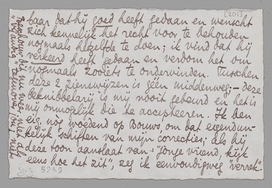 baar dat hij goed heeft gedaan en wenscht
zich kennelijk het recht voor te behouden
nogmaals hetzelfde te doen; ik vind dat hij
verkeerd heeft gedaan en verdom het om
nogmaals zooiets te ondervinden. Tusschen
deze 2 zienswijzen is géén middenweg; deze
is mij nooit gebeurd en het is
mij onmogelijk die te accepteeren. Ik den
eis, nog woedend op Bouws, om dat eigendun-
kelijk schiften van mijn correcties; als hij
deze voor aanslaat van "Jonge vriend, kijk
eens hoe het zit", zeg ik eenvoudigweg